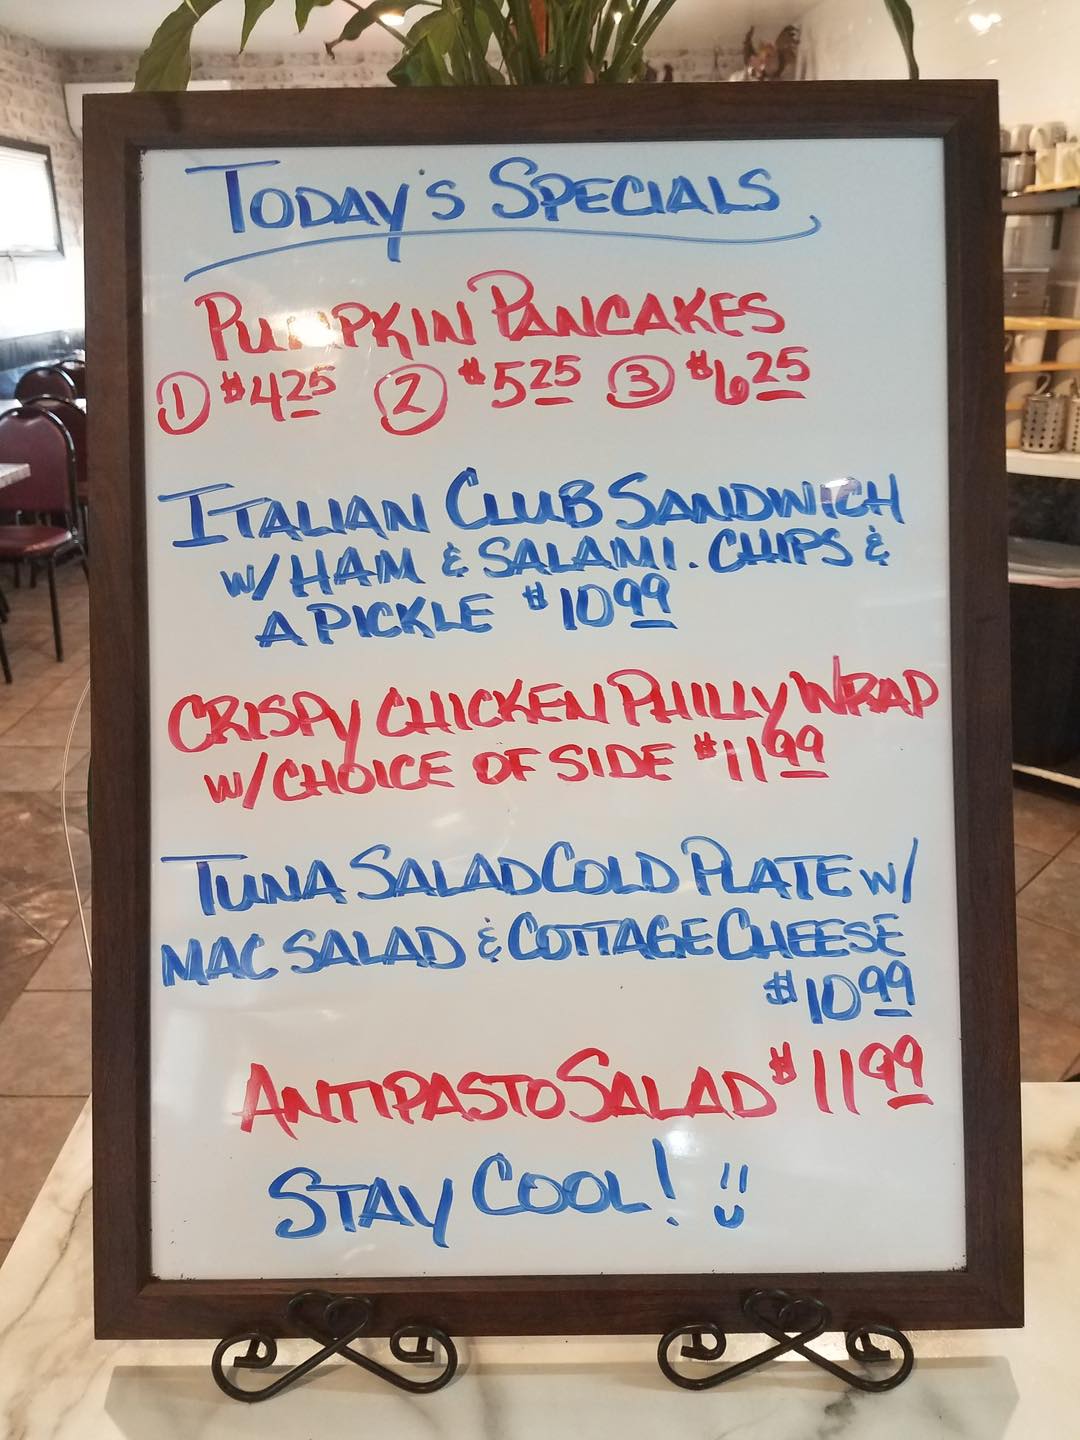 TODAY'S SPECIALS
PUMPKIN PANCAKES
① $4.25 ② $5.25 ③ $6.25
ITALIAN CLUB SANDWICH
W/ HAM & SALAMI. CHIPS &
A PICKLE $10.99
CRISPY CHICKEN PHILLY WRAP
W/ CHOICE OF SIDE $11.99
TUNA SALAD COLD PLATE W/
MAC SALAD & COTTAGE CHEESE
$10.99
ANTIPASTO SALAD $11.99
STAY COOL!